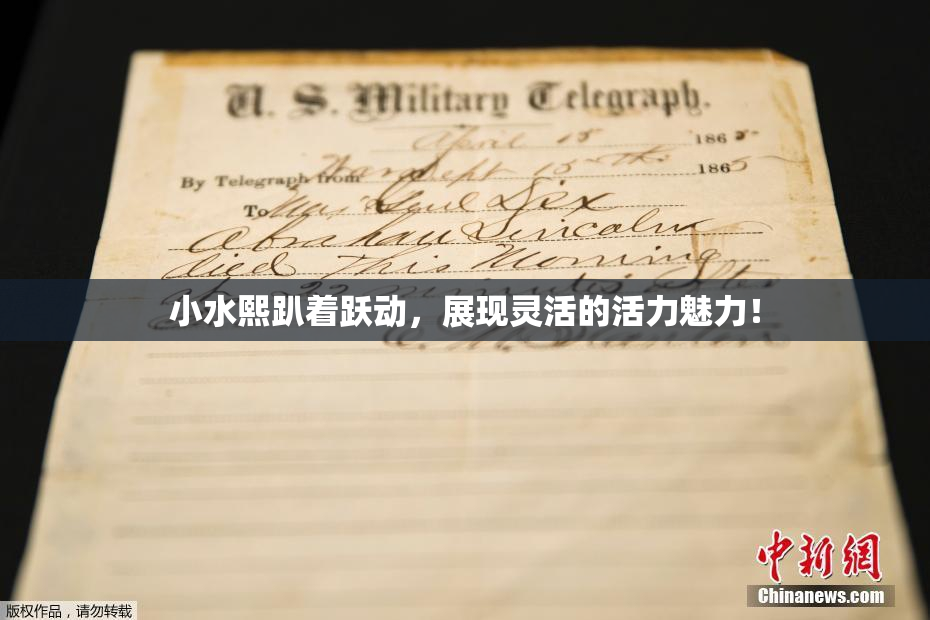 U. S. Military Telegraph.
April 15 1865
By Telegraph from War Dept 15th 1865
To Maj Genl Dix
Abraham Lincoln
died This Morning
22 minutes after
小水熙趴着跃动，展现灵活的活力魅力！
中新網
Chinanews.com
版权作品，请勿转载